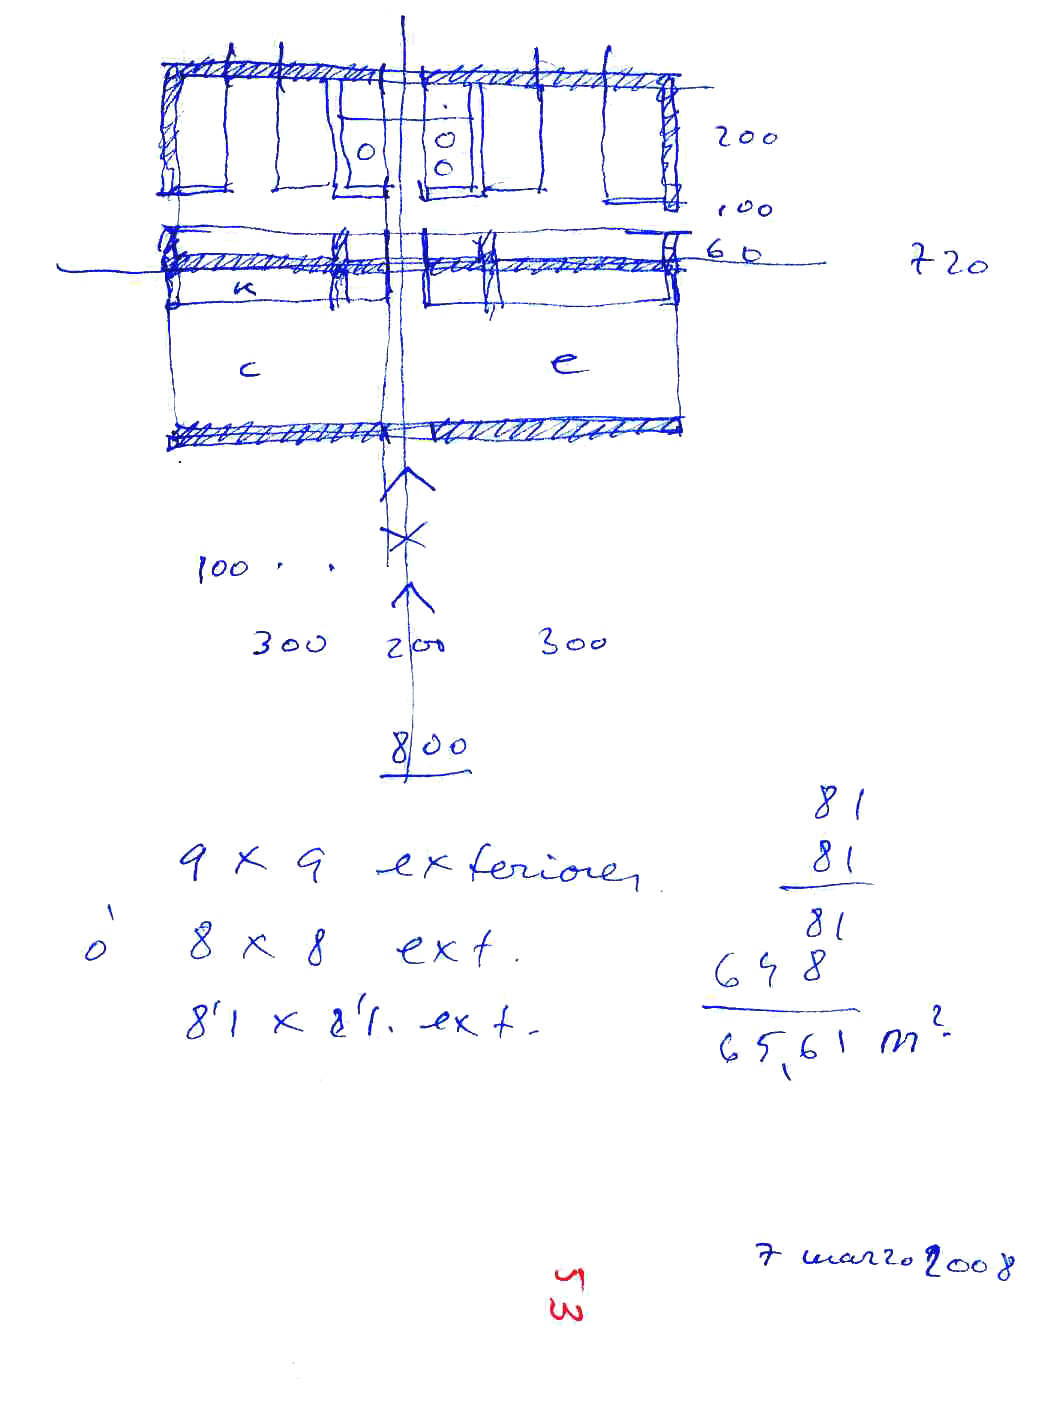 200
100
60
720
K
c
e
100 . .
300 200 300
800
81
81
9 x 9 exteriores
81
ó 8 x 8 ext.
648
8'1 x 8'1. ext.
65,61 m²
7 marzo 2008
53